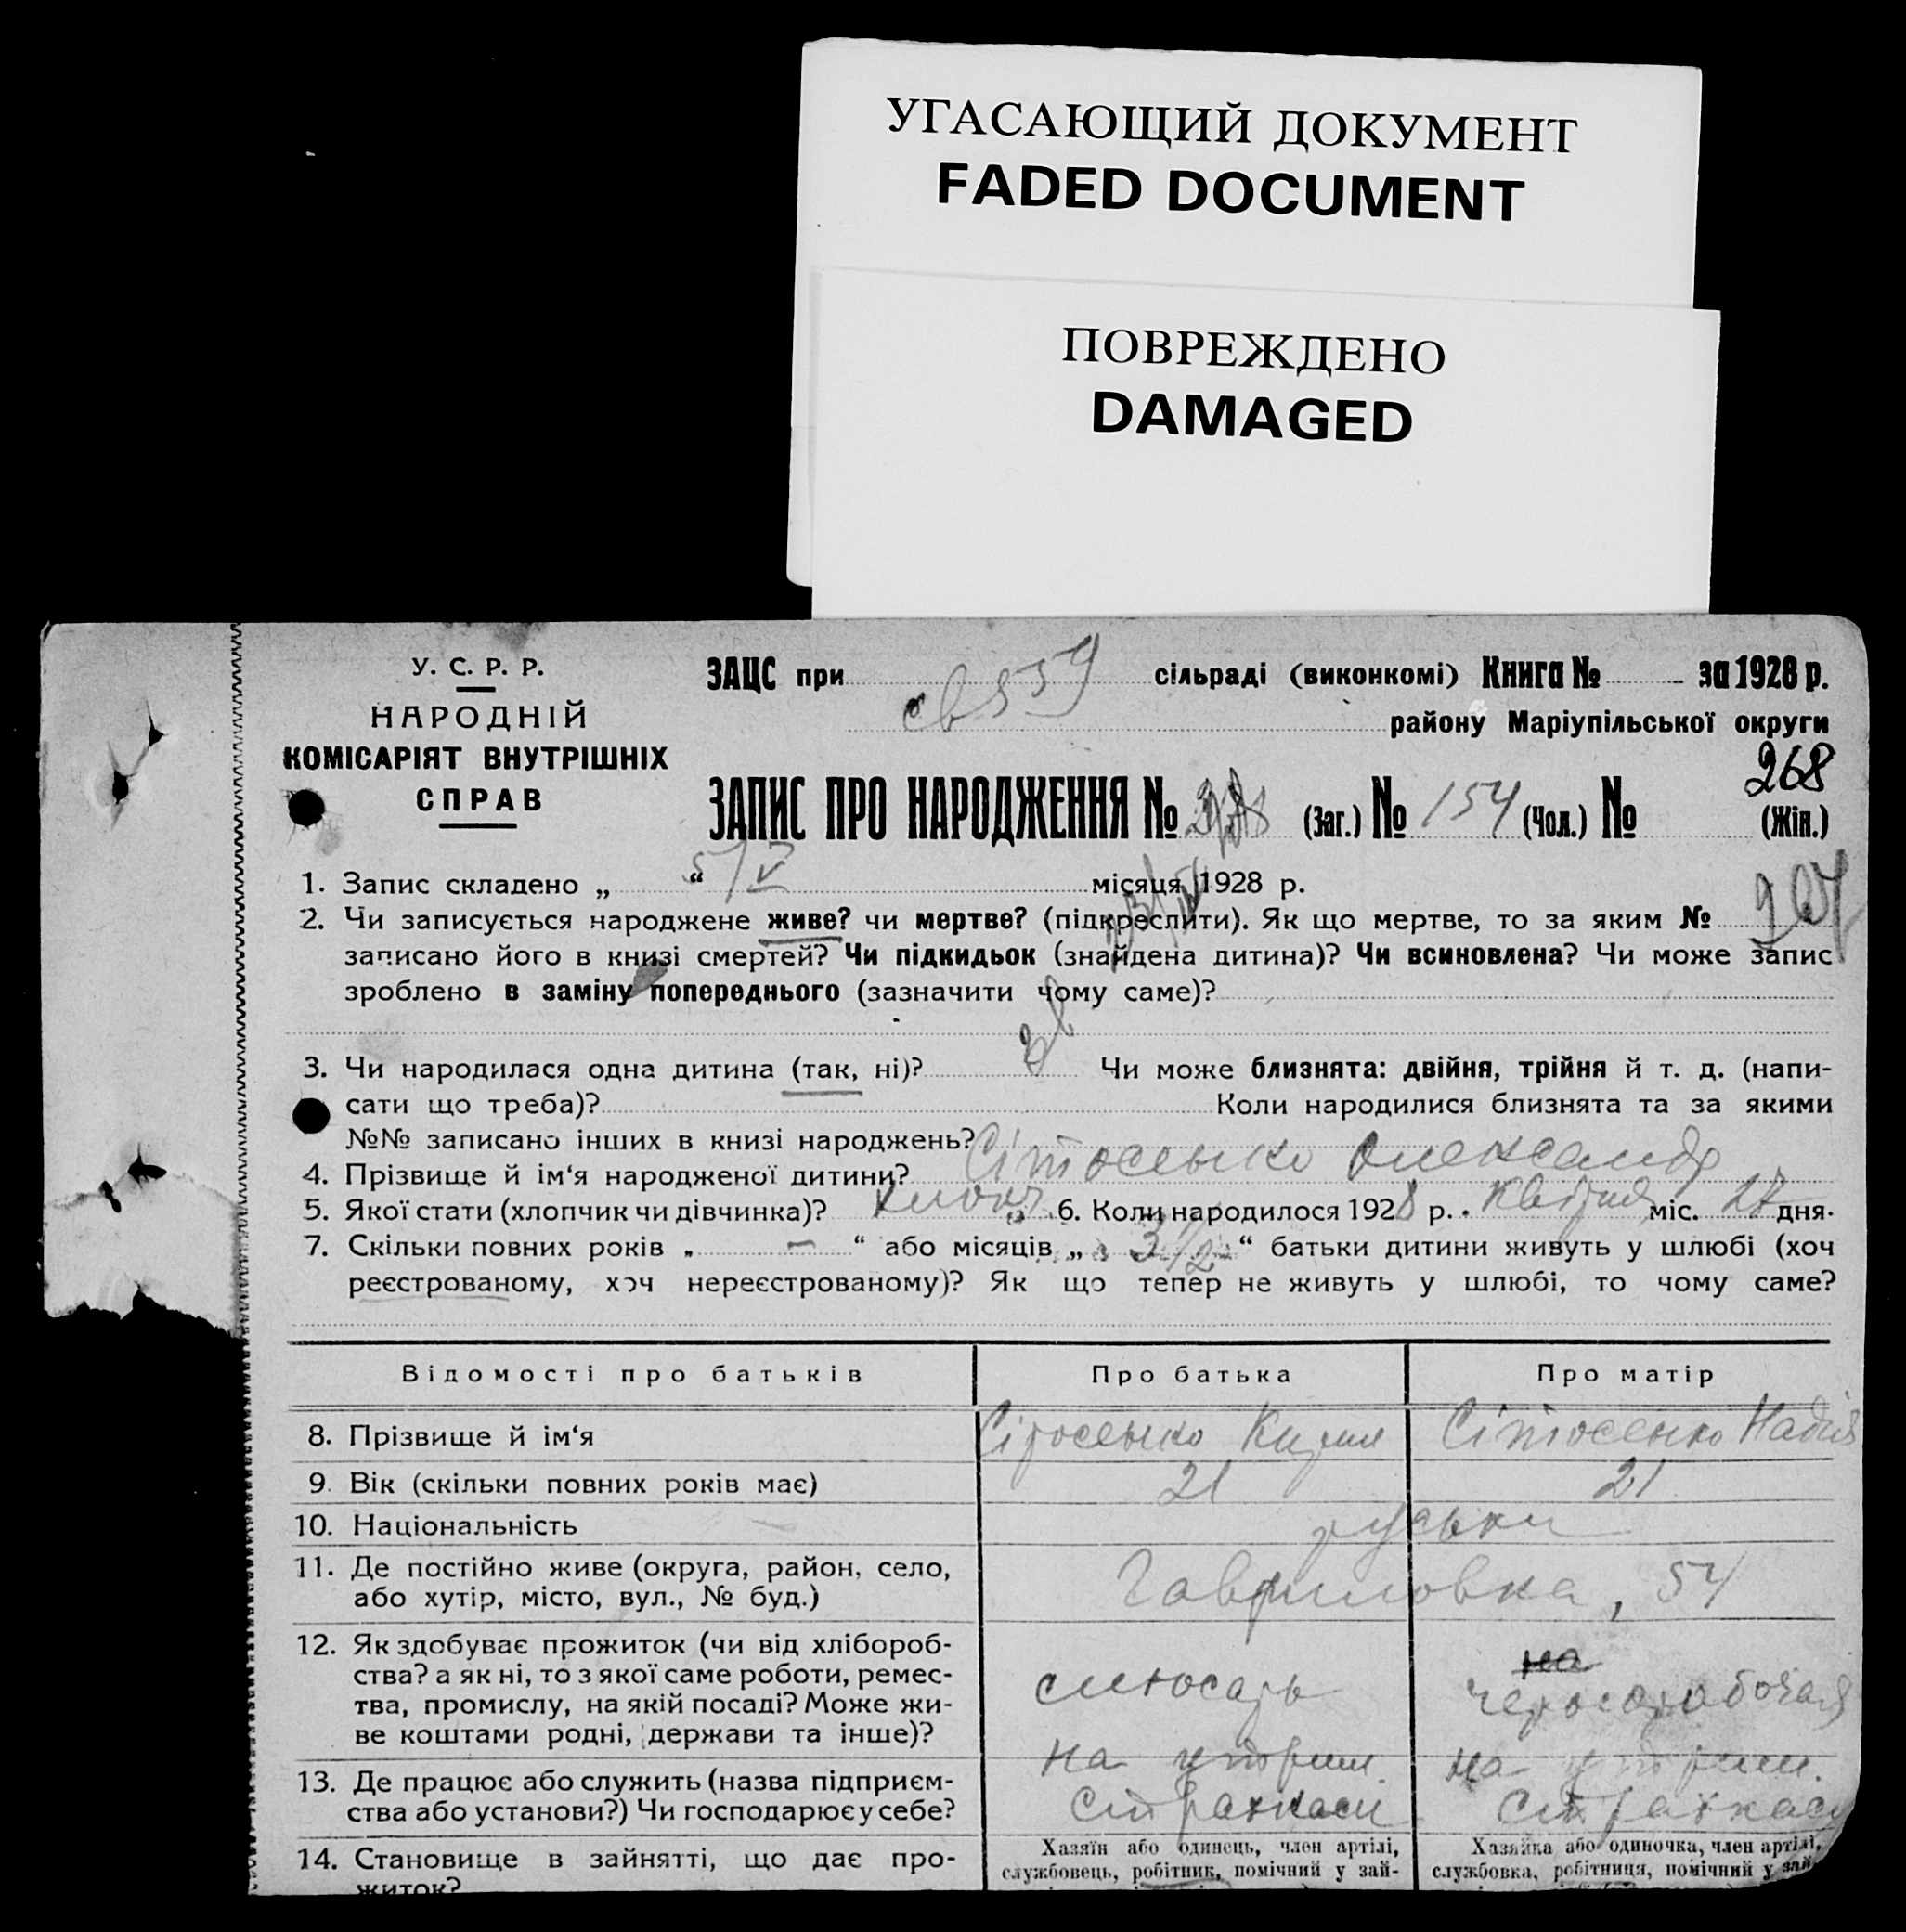 УГАСАЮЩИЙ ДОКУМЕНТ
FADED DOCUMENT
ПОВРЕЖДЕНО
DAMAGED
У. С. Р. Р.
НАРОДНІЙ
КОМІСАРІЯТ ВНУТРІШНІХ
СПРАВ
ЗАЦС при сільраді (виконкомі) Книга № за 1928 р.
району Маріупільської округи
268
ЗАПИС ПРО НАРОДЖЕННЯ № (Заг.) № 154 (Чол.) № (Жін.)
1. Запис складено „ 5/V “ місяця 1928 р.
2. Чи записується народжене живе? чи мертве? (підкреслити). Як що мертве, то за яким №
записано його в книзі смертей? Чи підкидьок (знайдена дитина)? Чи всиновлена? Чи може запис
зроблено в заміну попереднього (зазначити чому саме)?
3. Чи народилася одна дитина (так, ні)? Чи може близнята: двійня, трійня й т. д. (напи-
сати що треба)? Коли народилися близнята та за якими
№№ записано інших в книзі народжень?
4. Прізвище й ім‘я народженої дитини? Сітосенко Олександр
5. Якої стати (хлопчик чи дівчинка)? хлопч. 6. Коли народилося 1928 р. Квітня міс. 27 дня.
7. Скільки повних років „ — “ або місяців „ 3 1/2 “ батьки дитини живуть у шлюбі (хоч
реєстрованому, хоч нереєстрованому)? Як що тепер не живуть у шлюбі, то чому саме?
Відомості про батьків Про батька Про матір
8. Прізвище й ім‘я Сітосенко Кирил Сітосенко Надія
9. Вік (скільки повних років має) 21 21
10. Національність руськи
11. Де постійно живе (округа, район, село,
або хутір, місто, вул., № буд.) Гавриловка, 54
12. Як здобуває прожиток (чи від хлібороб-
ства? а як ні, то з якої саме роботи, ремес-
тва, промислу, на якій посаді? Може жи-
ве коштами родні, держави та інше)? слюсарь чернорабочая
13. Де працює або служить (назва підприєм-
ства або установи?) Чи господарює у себе? на утрим. страхкаси на утрим. страхкаси
14. Становище в зайнятті, що дає про-
житок?
Хазяїн або одинець, член артілі,
службовець, робітник, помічний у зай-
Хазяйка або одиночка, член артілі,
службовка, робітниця, помічний у зай-